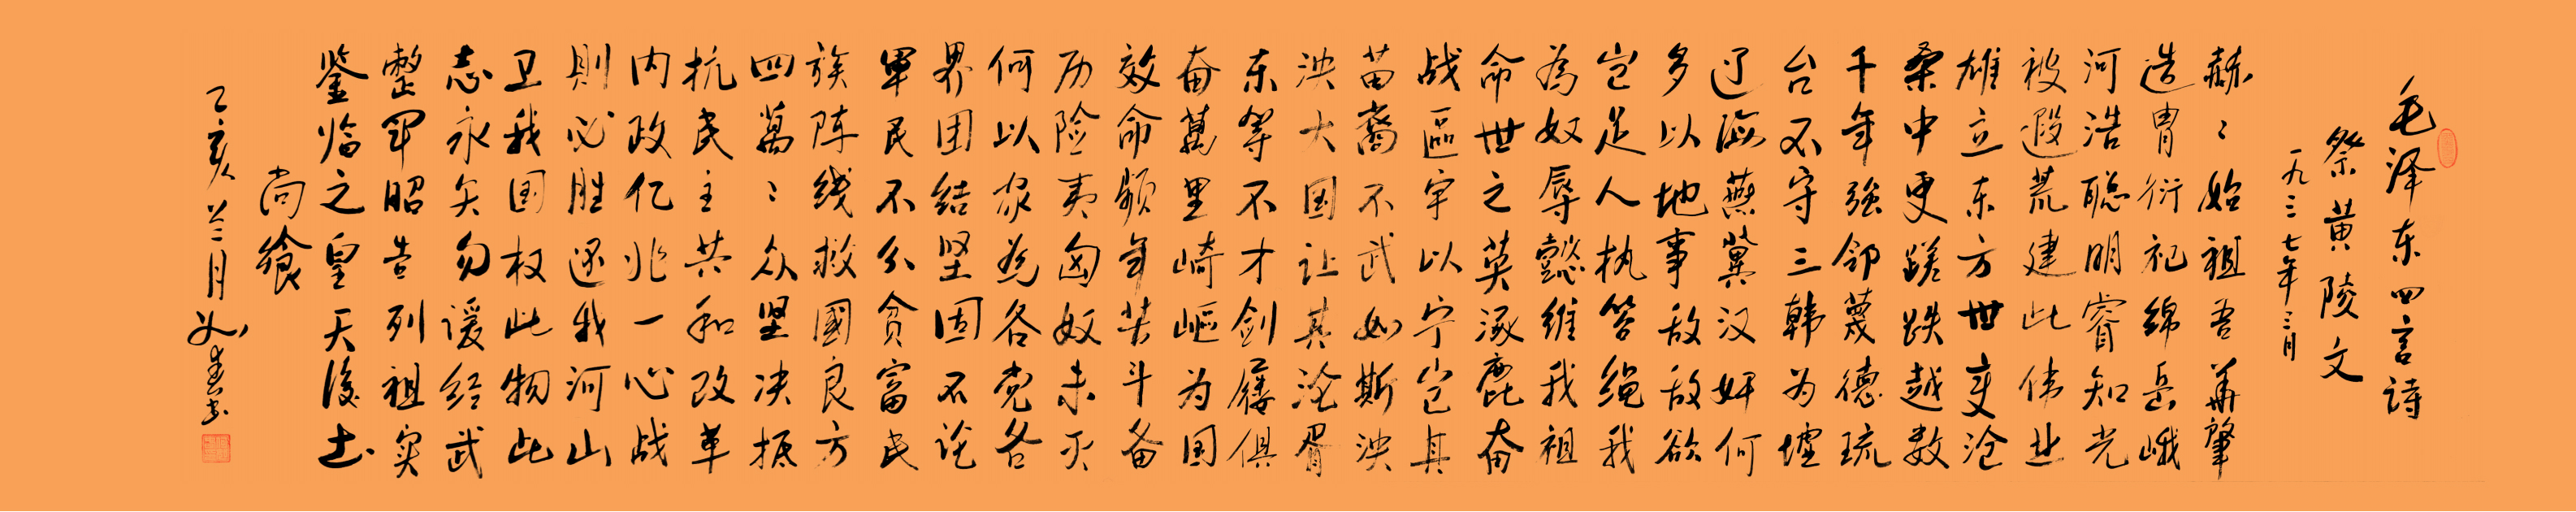 毛泽东四言詩
祭黄陵文
一九三七年三月
赫〻始祖吾華肇
造胄衍祀绵岳峨
河浩聪明睿知光
被遐荒建此伟业
雄立东方世变沧
桑中更蹉跌越数
千年强邻蔑德琉
台不守三韩为墟
辽海燕冀汉奸何
多以地事敌敌欲
岂足人执笞绳我
為奴辱懿维我祖
命世之英涿鹿奋
战區宇以宁岂其
苗裔不武如斯泱
泱大国让其沦胥
东等不才剑屦俱
奋萬里崎岖为国
效命频年苦斗备
历险夷匈奴未灭
何以家为各党各
界团结坚固不论
軍民不分贫富民
族阵线救國良方
四萬〻众坚决抵
抗民主共和改革
内政亿兆一心战
則必胜还我河山
卫我国权此物此
志永矢勿谖经武
整军昭告列祖实
鉴临之皇天後土
尚飨
乙亥 月 书